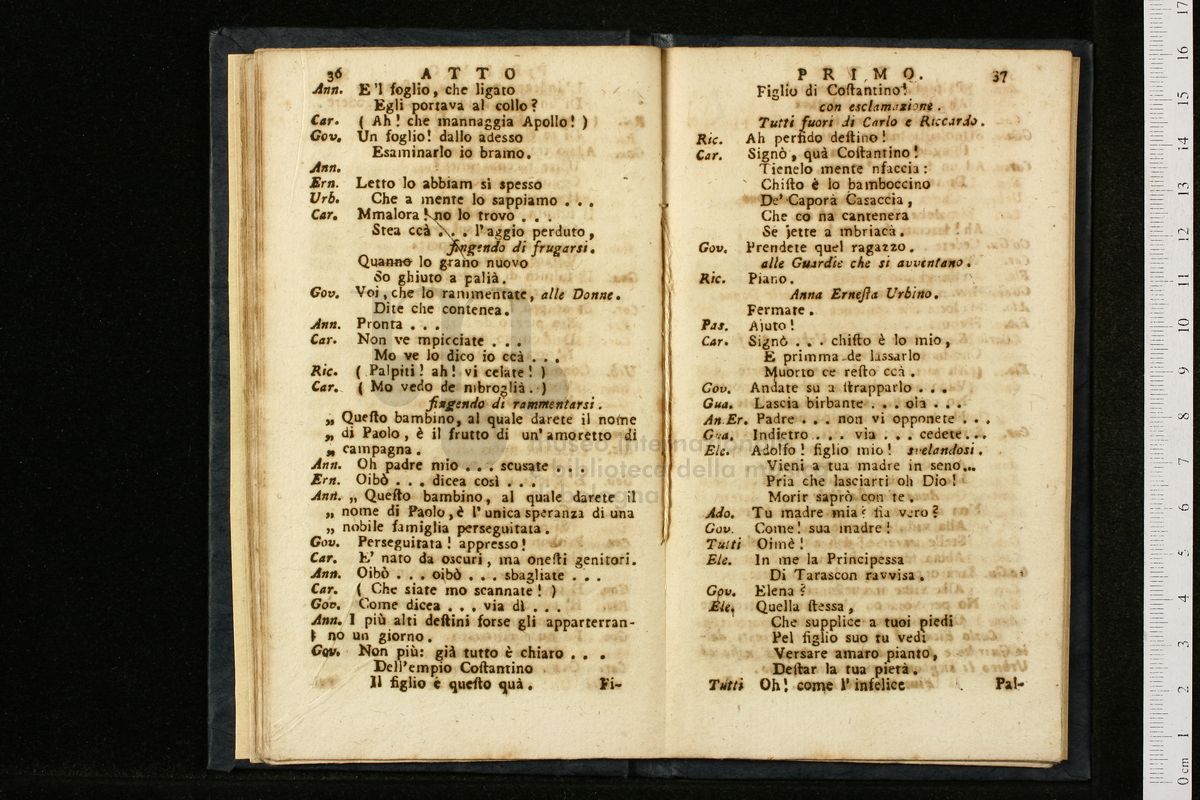 36 ATTO
Ann. E'l foglio, che ligato
Egli portava al collo?
Car. ( Ah! che mannaggia Apollo! )
Gov. Un foglio! dallo adesso
Esaminarlo io bramo.
Ann.
Ern. Letto lo abbiam si spesso
Urb. Che a mente lo sappiamo . . .
Car. Mmalora! no lo trovo . . .
Stea ccà . . . l'aggio perduto,
fingendo di frugarsi.
Quanno lo grano nuovo
So ghiuto a palià.
Gov. Voi, che lo rammentate, alle Donne.
Dite che contenea.
Ann. Pronta . . .
Car. Non ve mpicciate . . .
Mo ve lo dico io ccà . . .
Ric. ( Palpiti! ah! vi celate! )
Car. ( Mo vedo de mbroglià. )
fingendo di rammentarsi.
„ Questo bambino, al quale darete il nome
„ di Paolo, è il frutto di un'amoretto di
„ campagna.
Ann. Oh padre mio . . . scusate . . .
Ern. Oibò . . . dicea così . . .
Ann. „ Questo bambino, al quale darete il
„ nome di Paolo, è l'unica speranza di una
„ nobile famiglia perseguitata.
Gov. Perseguitata! appresso!
Car. E' nato da oscuri, ma onesti genitori.
Ann. Oibò . . . oibò . . . sbagliate . . .
Car. ( Che siate mo scannate! )
Gov. Come dicea . . . via dì . . .
Ann. I più alti destini forse gli apparterran-
no un giorno.
Gov. Non più: già tutto è chiaro . . .
Dell'empio Costantino
Il figlio è questo quà. Fi-
PRIMO. 37
Figlio di Costantino!
con esclamazione.
Tutti fuori di Carlo e Riccardo.
Ric. Ah perfido destino!
Car. Signò, quà Costantino!
Tienelo mente nfaccia:
Chisto è lo bamboccino
De' Caporà Casaccia,
Che co na cantenera
Se jette a mbriacà.
Gov. Prendete quel ragazzo.
alle Guardie che si avventano.
Ric. Piano.
Anna Ernesta Urbino.
Fermate.
Pas. Ajuto!
Car. Signò . . . chisto è lo mio,
E primma de lassarlo
Muorto ce resto ccà.
Gov. Andate su a strapparlo . . .
Gua. Lascia birbante . . . olà . . .
An.Er. Padre . . . non vi opponete . . .
Gua. Indietro . . . via . . . cedete...
Ele. Adolfo! figlio mio! svelandosi.
Vieni a tua madre in seno...
Pria che lasciarti oh Dio!
Morir saprò con te.
Ado. Tu madre mia? fia vero?
Gov. Come! sua madre!
Tutti Oimè!
Ele. In me la Principessa
Di Tarascon ravvisa.
Gov. Elena?
Ele. Quella stessa,
Che supplice a tuoi piedi
Pel figlio suo tu vedi
Versare amaro pianto,
Destar la tua pietà.
Tutti Oh! come l'infelice Pal-